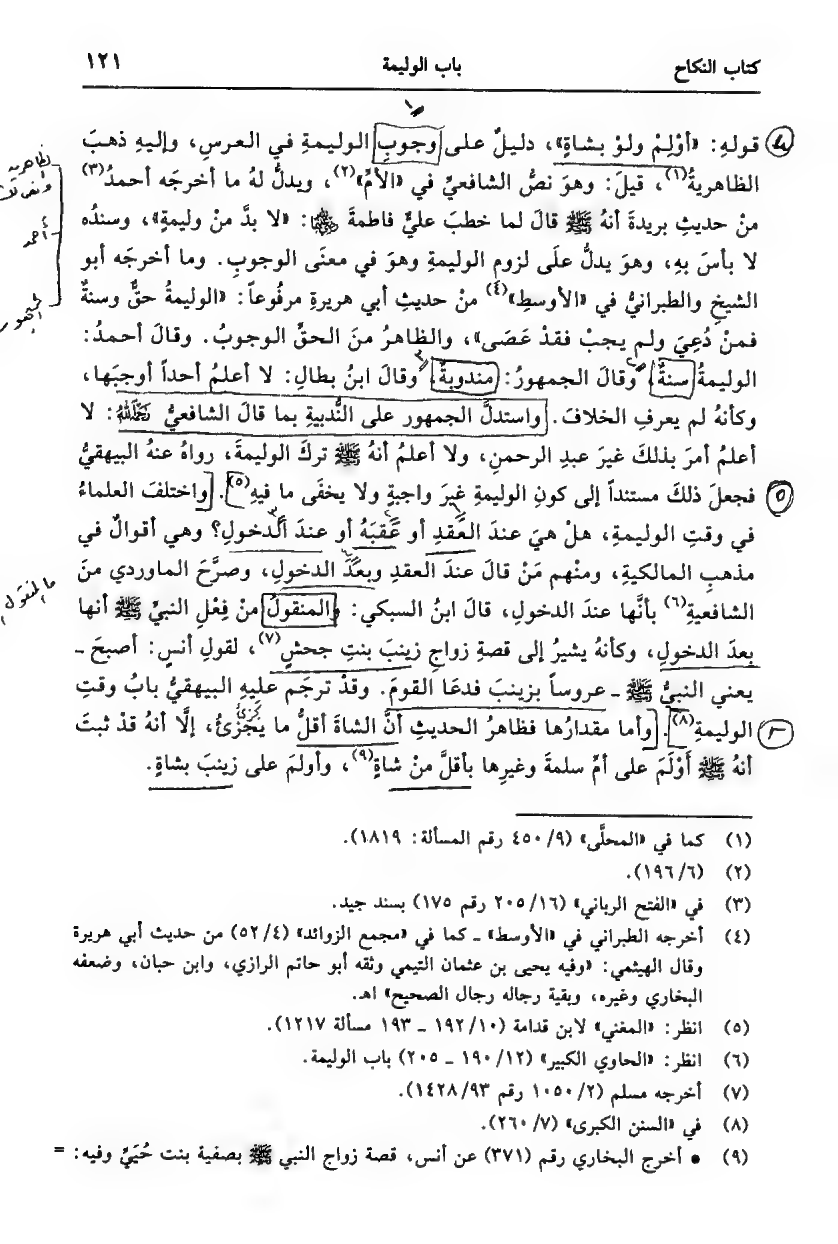 كتاب النكاح باب الوليمة ١٢١
قوله: «أوْلِمْ ولوْ بشاةٍ»، دليلٌ على وجوبِ الوليمةِ في العرسِ، وإليهِ ذهبَ
الظاهريةُ(١)، قيلَ: وهوَ نصُّ الشافعيِّ في «الأمِّ»(٢)، ويدلُّ لهُ ما أخرجَه أحمدُ(٣)
منْ حديثِ بريدةَ أنهُ ﷺ قالَ لما خطبَ عليٌّ فاطمةَ : «لا بدَّ منْ وليمةٍ»، وسندُه
لا بأسَ بهِ، وهوَ يدلُّ علَى لزومِ الوليمةِ وهوَ في معنَى الوجوبِ. وما أخرجَه أبو
الشيخِ والطبرانيُّ في «الأوسطِ»(٤) منْ حديثِ أبي هريرةِ مرفُوعاً: «الوليمةُ حقٌّ وسنةٌ
فمنْ دُعِيَ ولم يجبْ فقدْ عَصَى»، والظاهرُ منَ الحقِّ الوجوبُ. وقالَ أحمدُ:
الوليمةُ سنةٌ، وقالَ الجمهورُ: مندوبةٌ، وقالَ ابنُ بطالِ: لا أعلمُ أحداً أوجبَها،
وكأنهُ لم يعرفِ الخلافَ. واستدلَّ الجمهور على النُّدبيةِ بما قالَ الشافعيُّ رَحِمَهُ اللهُ: لا
أعلمُ أمرَ بذلكَ غيرَ عبدِ الرحمنِ، ولا أعلمُ أنهُ ﷺ تركَ الوليمةَ، رواهُ عنهُ البيهقيُّ
فجعلَ ذلكَ مستنداً إلى كونِ الوليمةِ غيرَ واجبةٍ ولا يخفَى ما فيهِ(٥). واختلفَ العلماءُ
في وقتِ الوليمةِ، هلْ هيَ عندَ العقدِ أو عَقِبَهُ أو عندَ الدخولِ؟ وهي أقوالٌ في
مذهبِ المالكيةِ، ومنْهم مَنْ قالَ عندَ العقدِ وبعدَ الدخولِ، وصرَّحَ الماوردي منَ
الشافعيةِ(٦) بأنَّها عندَ الدخولِ، قالَ ابنُ السبكي: والمنقولُ منْ فِعْلِ النبيِّ ﷺ أنها
بعدَ الدخولِ، وكأنهُ يشيرُ إلى قصةِ زواجِ زينبَ بنتِ جحشٍ(٧)، لقولِ أنسٍ: أصبحَ ـ
يعني النبيَّ ﷺ ـ عروساً بزينبَ فدعَا القومَ. وقدْ ترجَم عليهِ البيهقيُّ بابُ وقتِ
الوليمةِ(٨). وأما مقدارُها فظاهرُ الحديثِ أنَّ الشاةَ أقلُّ ما يجْزئُ، إلَّا أنهُ قدْ ثبتَ
أنهُ ﷺ أَوْلَمَ على أمِّ سلمةَ وغيرِها بأقلَّ منْ شاةٍ(٩)، وأولمَ على زينبَ بشاةٍ.
(١) كما في «المحلَّى» (٩/ ٤٥٠ رقم المسألة: ١٨١٩).
(٢) (٦/ ١٩٦).
(٣) في «الفتح الرباني» (١٦/ ٢٠٥ رقم ١٧٥) بسند جيد.
(٤) أخرجه الطبراني في «الأوسط» ـ كما في «مجمع الزوائد» (٤/ ٥٢) من حديث أبي هريرة
وقال الهيثمي: «وفيه يحيى بن عثمان التيمي وثقه أبو حاتم الرازي، وابن حبان، وضعفه
البخاري وغيره، وبقية رجاله رجال الصحيح» اهـ.
(٥) انظر: «المغني» لابن قدامة (١٠/ ١٩٢ ـ ١٩٣ مسألة ١٢١٧).
(٦) انظر: «الحاوي الكبير» (١٢/ ١٩٠ ـ ٢٠٥) باب الوليمة.
(٧) أخرجه مسلم (٢/ ١٠٥٠ رقم ٩٣/ ١٤٢٨).
(٨) في «السنن الكبرى» (٧/ ٢٦٠).
(٩) • أخرج البخاري رقم (٣٧١) عن أنس، قصة زواج النبي ﷺ بصفية بنت حُيَيٍّ وفيه: =
أحمد